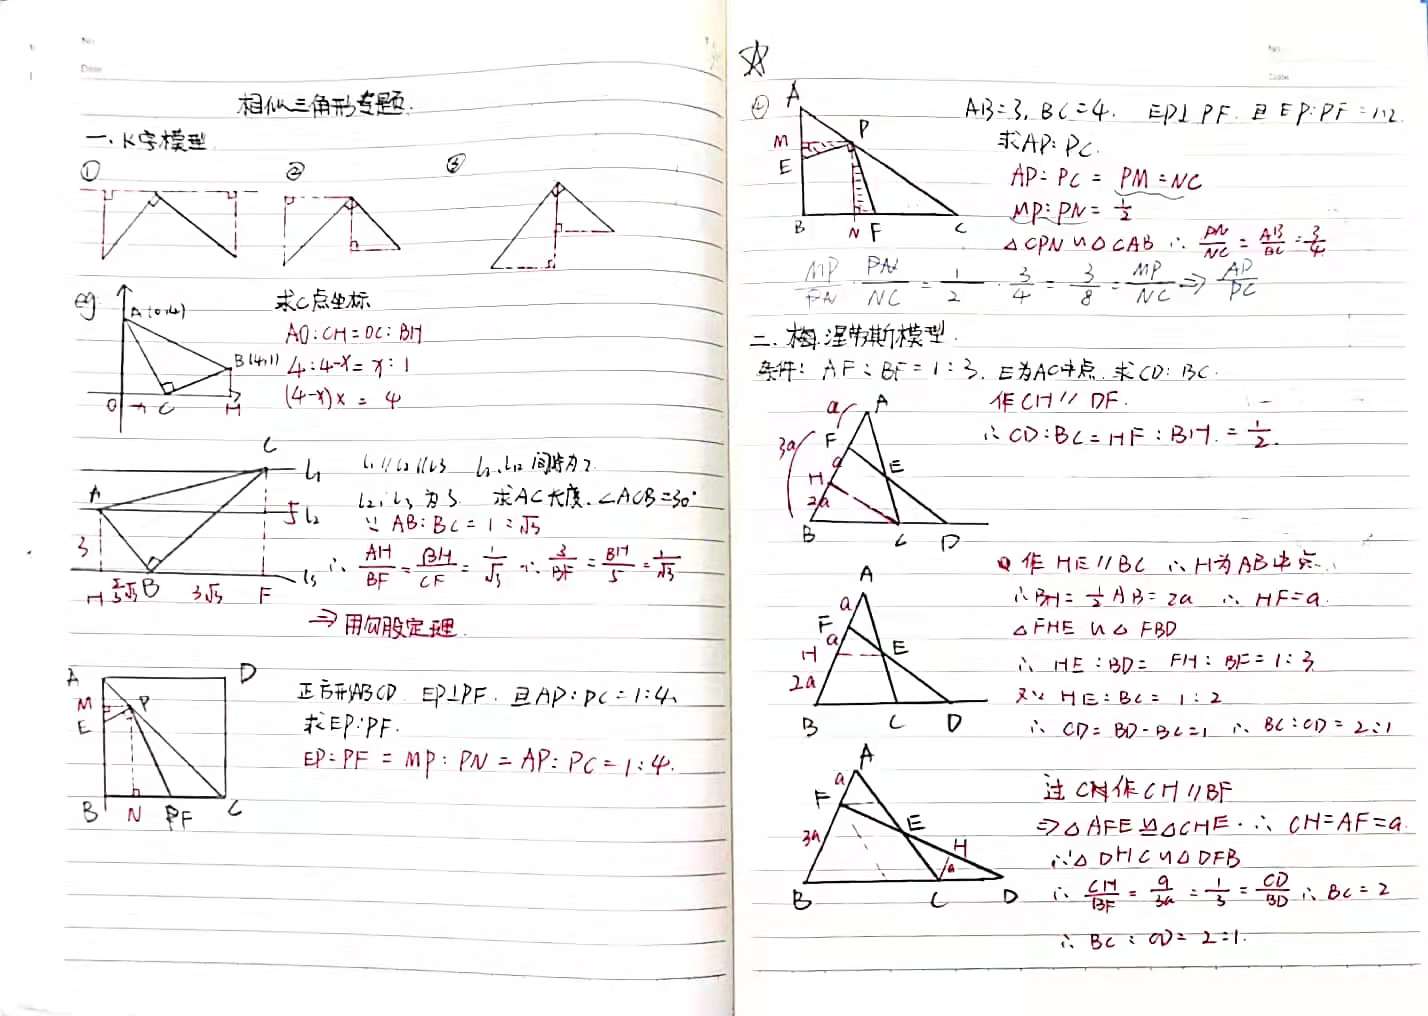 No.
Date
相似三角形专题.
一、K字模型
① ② ③
eg
求C点坐标
A(0,4)
AO:CH=OC:BH
B(4,1)
4:4-x=x:1
(4-x)x=4
O x C H
C
l₁
l₁//l₂//l₃ l₁、l₂间距为2
A
5 l₂
l₂,l₃为3 求AC长度.∠ACB=30°
∵AB:BC=1:√3
3
∴AH/BF=BH/CF=1/√3 ∴3/BF=BH/5=1/√3
l₃
H 5/3√3 B 3√3 F
⇒用勾股定理.
A D
M P
E
B N F C
正方形ABCD EP⊥PF.且AP:PC=1:4.
求EP:PF.
EP:PF=MP:PN=AP:PC=1:4.
No.
Date
④
A
M P
E
B N F C
AB=3,BC=4. EP⊥PF.且EP:PF=1:2.
求AP:PC.
AP:PC=PM:NC
MP:PN=1/2
△CPN∽△CAB ∴PN/NC=AB/BC=3/4
MP/PN·PN/NC=1/2·3/4=3/8=MP/NC⇒AP/PC
二、梅涅劳斯模型.
条件:AF:BF=1:3.E为AC中点.求CD:BC.
作CH//DF.
∴CD:BC=HF:BH.=1/2.
a A
3a F
a E
H
2a
B C D
作HE//BC ∴H为AB中点.
∴BH=1/2AB=2a ∴HF=a.
△FHE∽△FBD
∴HE:BD=FH:BF=1:3
又∵HE:BC=1:2
∴CD=BD-BC=1 ∴BC:CD=2:1
A
a
F
a
H E
2a
B C D
过C作CH//BF
⇒△AFE≌△CHE.∴CH=AF=a.
∵△DHC∽△DFB
∴CH/BF=a/3a=1/3=CD/BD ∴BC=2
∴BC:CD=2:1.
A
a
F
E
3a H
a
B C D